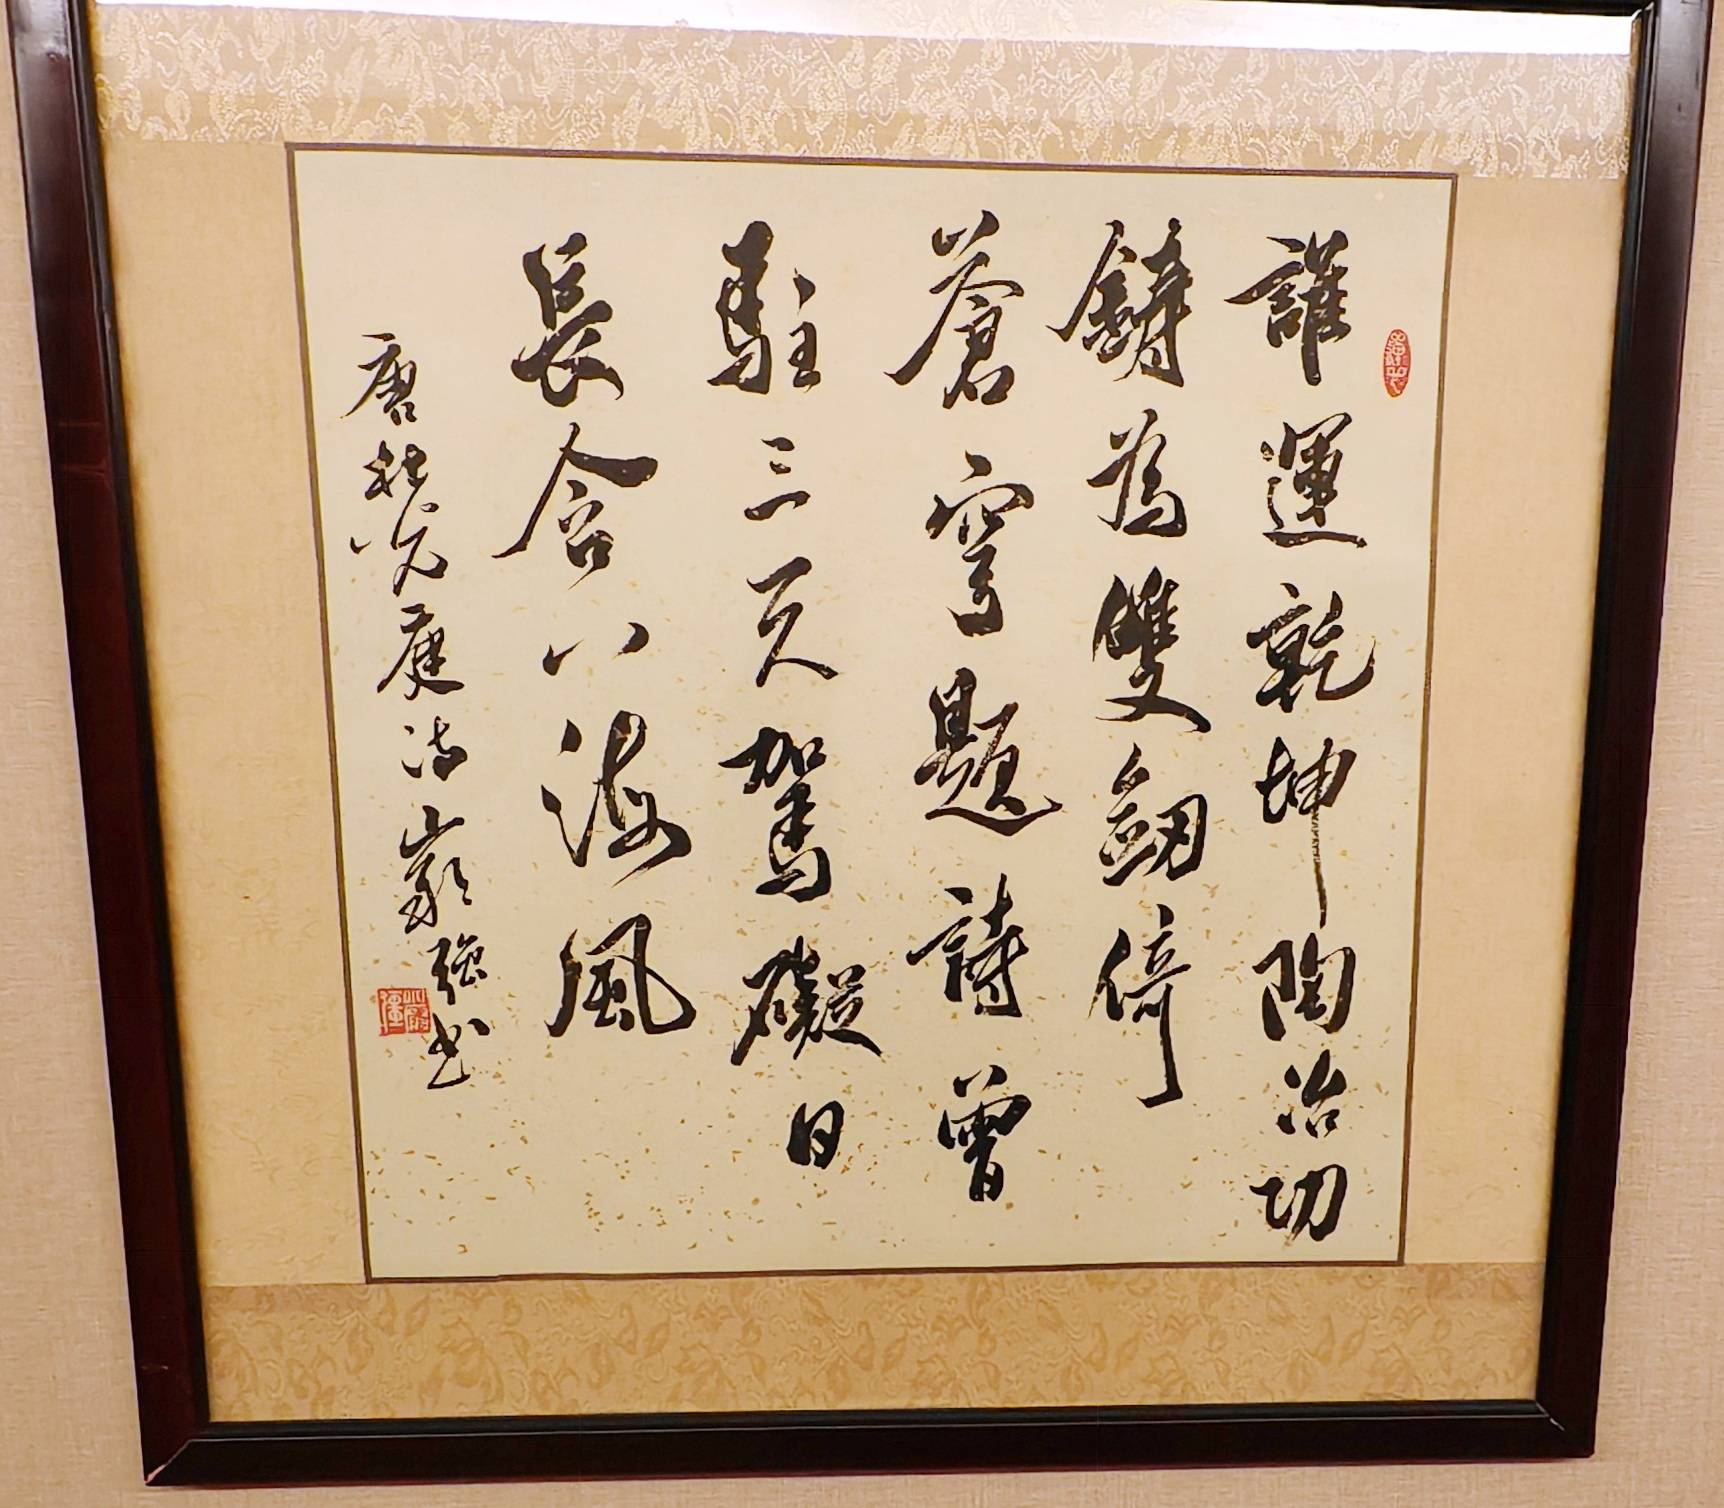 誰運乾坤陶冶功
鑄為雙劒倚
蒼穹題詩曾
駐三天駕礙日
長含八海風
唐杜光庭詩嚴強書